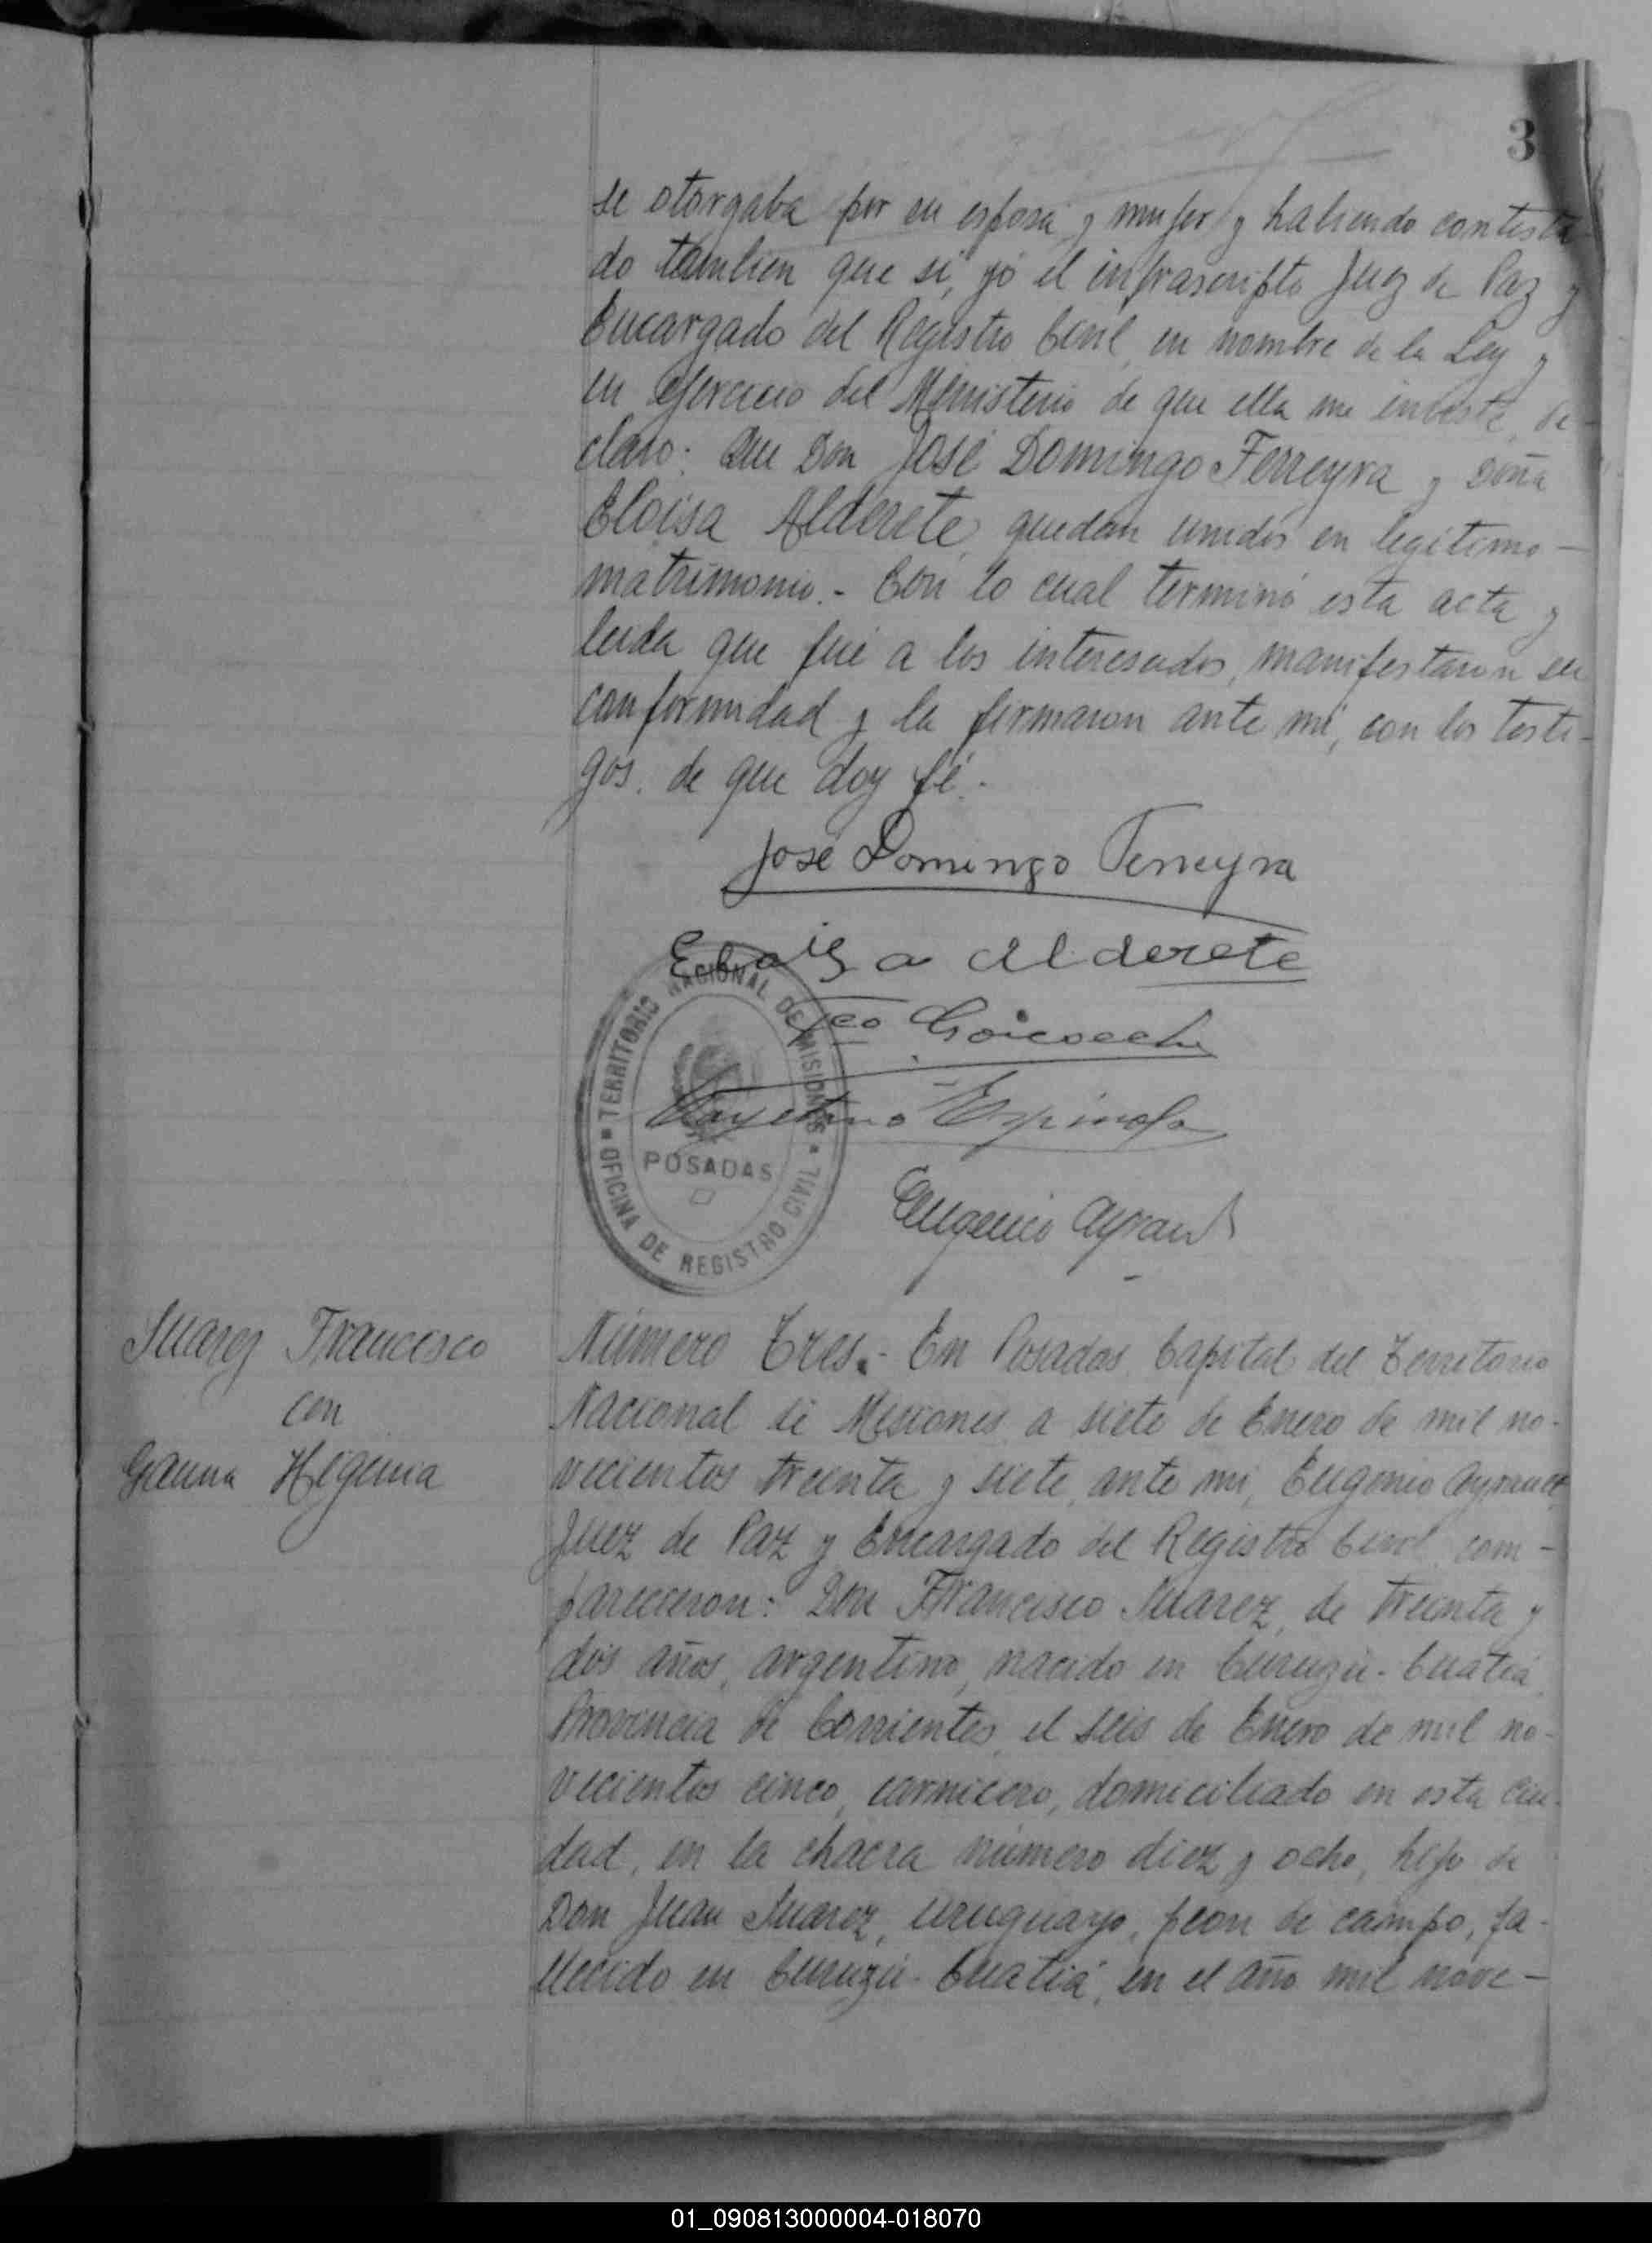 3
se otorgaba por su esposa y mujer y habiendo contesta-
do tambien que sí, yó el infrascripto Juez de Paz y
Encargado del Registro Civil, en nombre de la Ley y
en ejercicio del Ministerio de que ella me inviste, de-
claro: Que Don José Domingo Ferreyra y Doña
Eloisa Alderete, quedan unidos en legítimo —
matrimonio.- Con lo cual terminó esta acta y
leida que fué a los interesados, manifestaron su
conformidad y la firmaron ante mí, con los testi-
gos. de que doy fé.-
José Domingo Ferreyra
Eloisa Alderete
Fco Goicoechea
Cayetano Espinola
Eugenio Ayrault
TERRITORIO NACIONAL DE MISIONES
POSADAS
OFICINA DE REGISTRO CIVIL
Suarez Francisco
con
Gauna Higenia
Número Tres.- En Posadas, Capital del Territorio
Nacional de Misiones a siete de Enero de mil no-
vecientos treinta y siete, ante mí, Eugenio Ayrault,
Juez de Paz y Encargado del Registro Civil com-
parecieron: Don Francisco Suarez, de treinta y
dos años, argentino, nacido en Curuzú-Cuatiá,
Provincia de Corrientes, el seis de Enero de mil no-
vecientos cinco, carnicero, domiciliado en esta Ciu-
dad, en la chacra número diez y ocho, hijo de
Don Juan Suarez, uruguayo, peon de campo, fa-
llecido en Curuzú-Cuatiá, en el año mil nove-
01_090813000004-018070